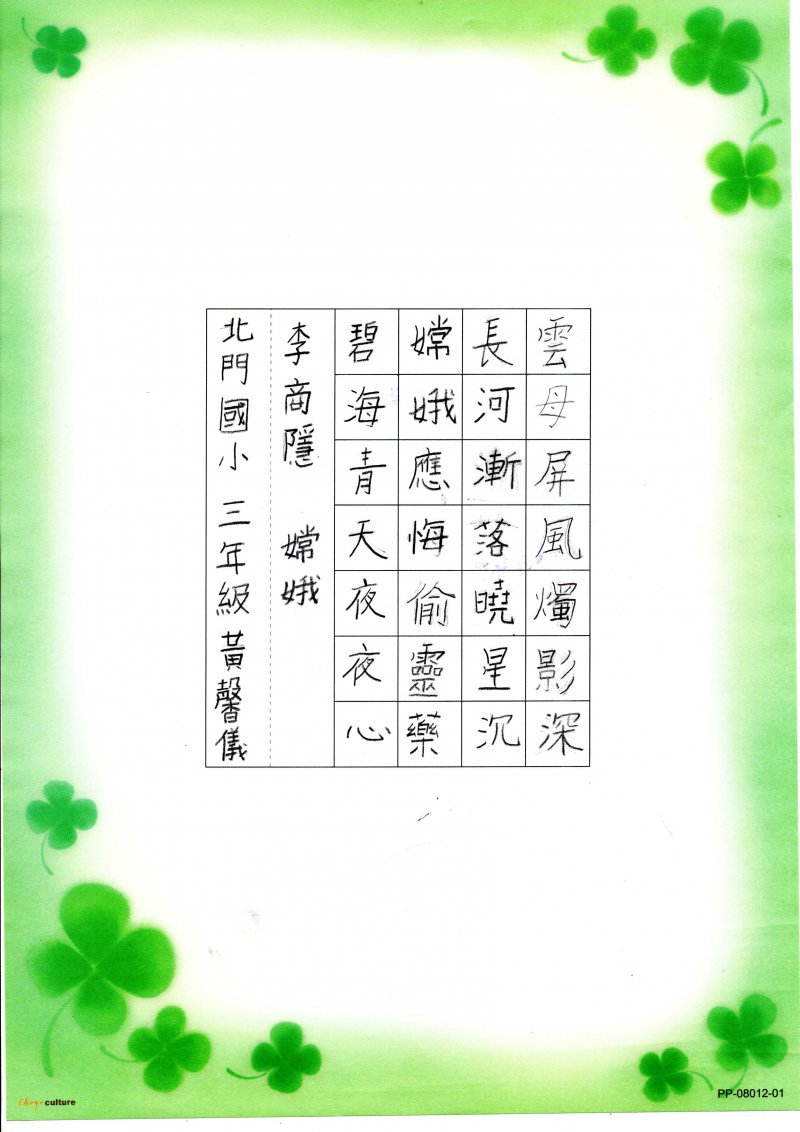 雲母屏風燭影深
長河漸落曉星沉
嫦娥應悔偷靈藥
碧海青天夜夜心
李商隱 嫦娥
北門國小 三年級 黃馨儀
culture
PP-08012-01